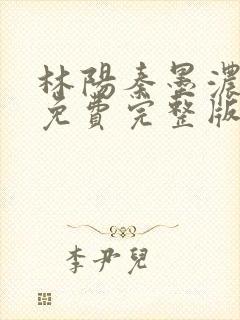 林陽秦墨濃
免費完整版
李尹兒